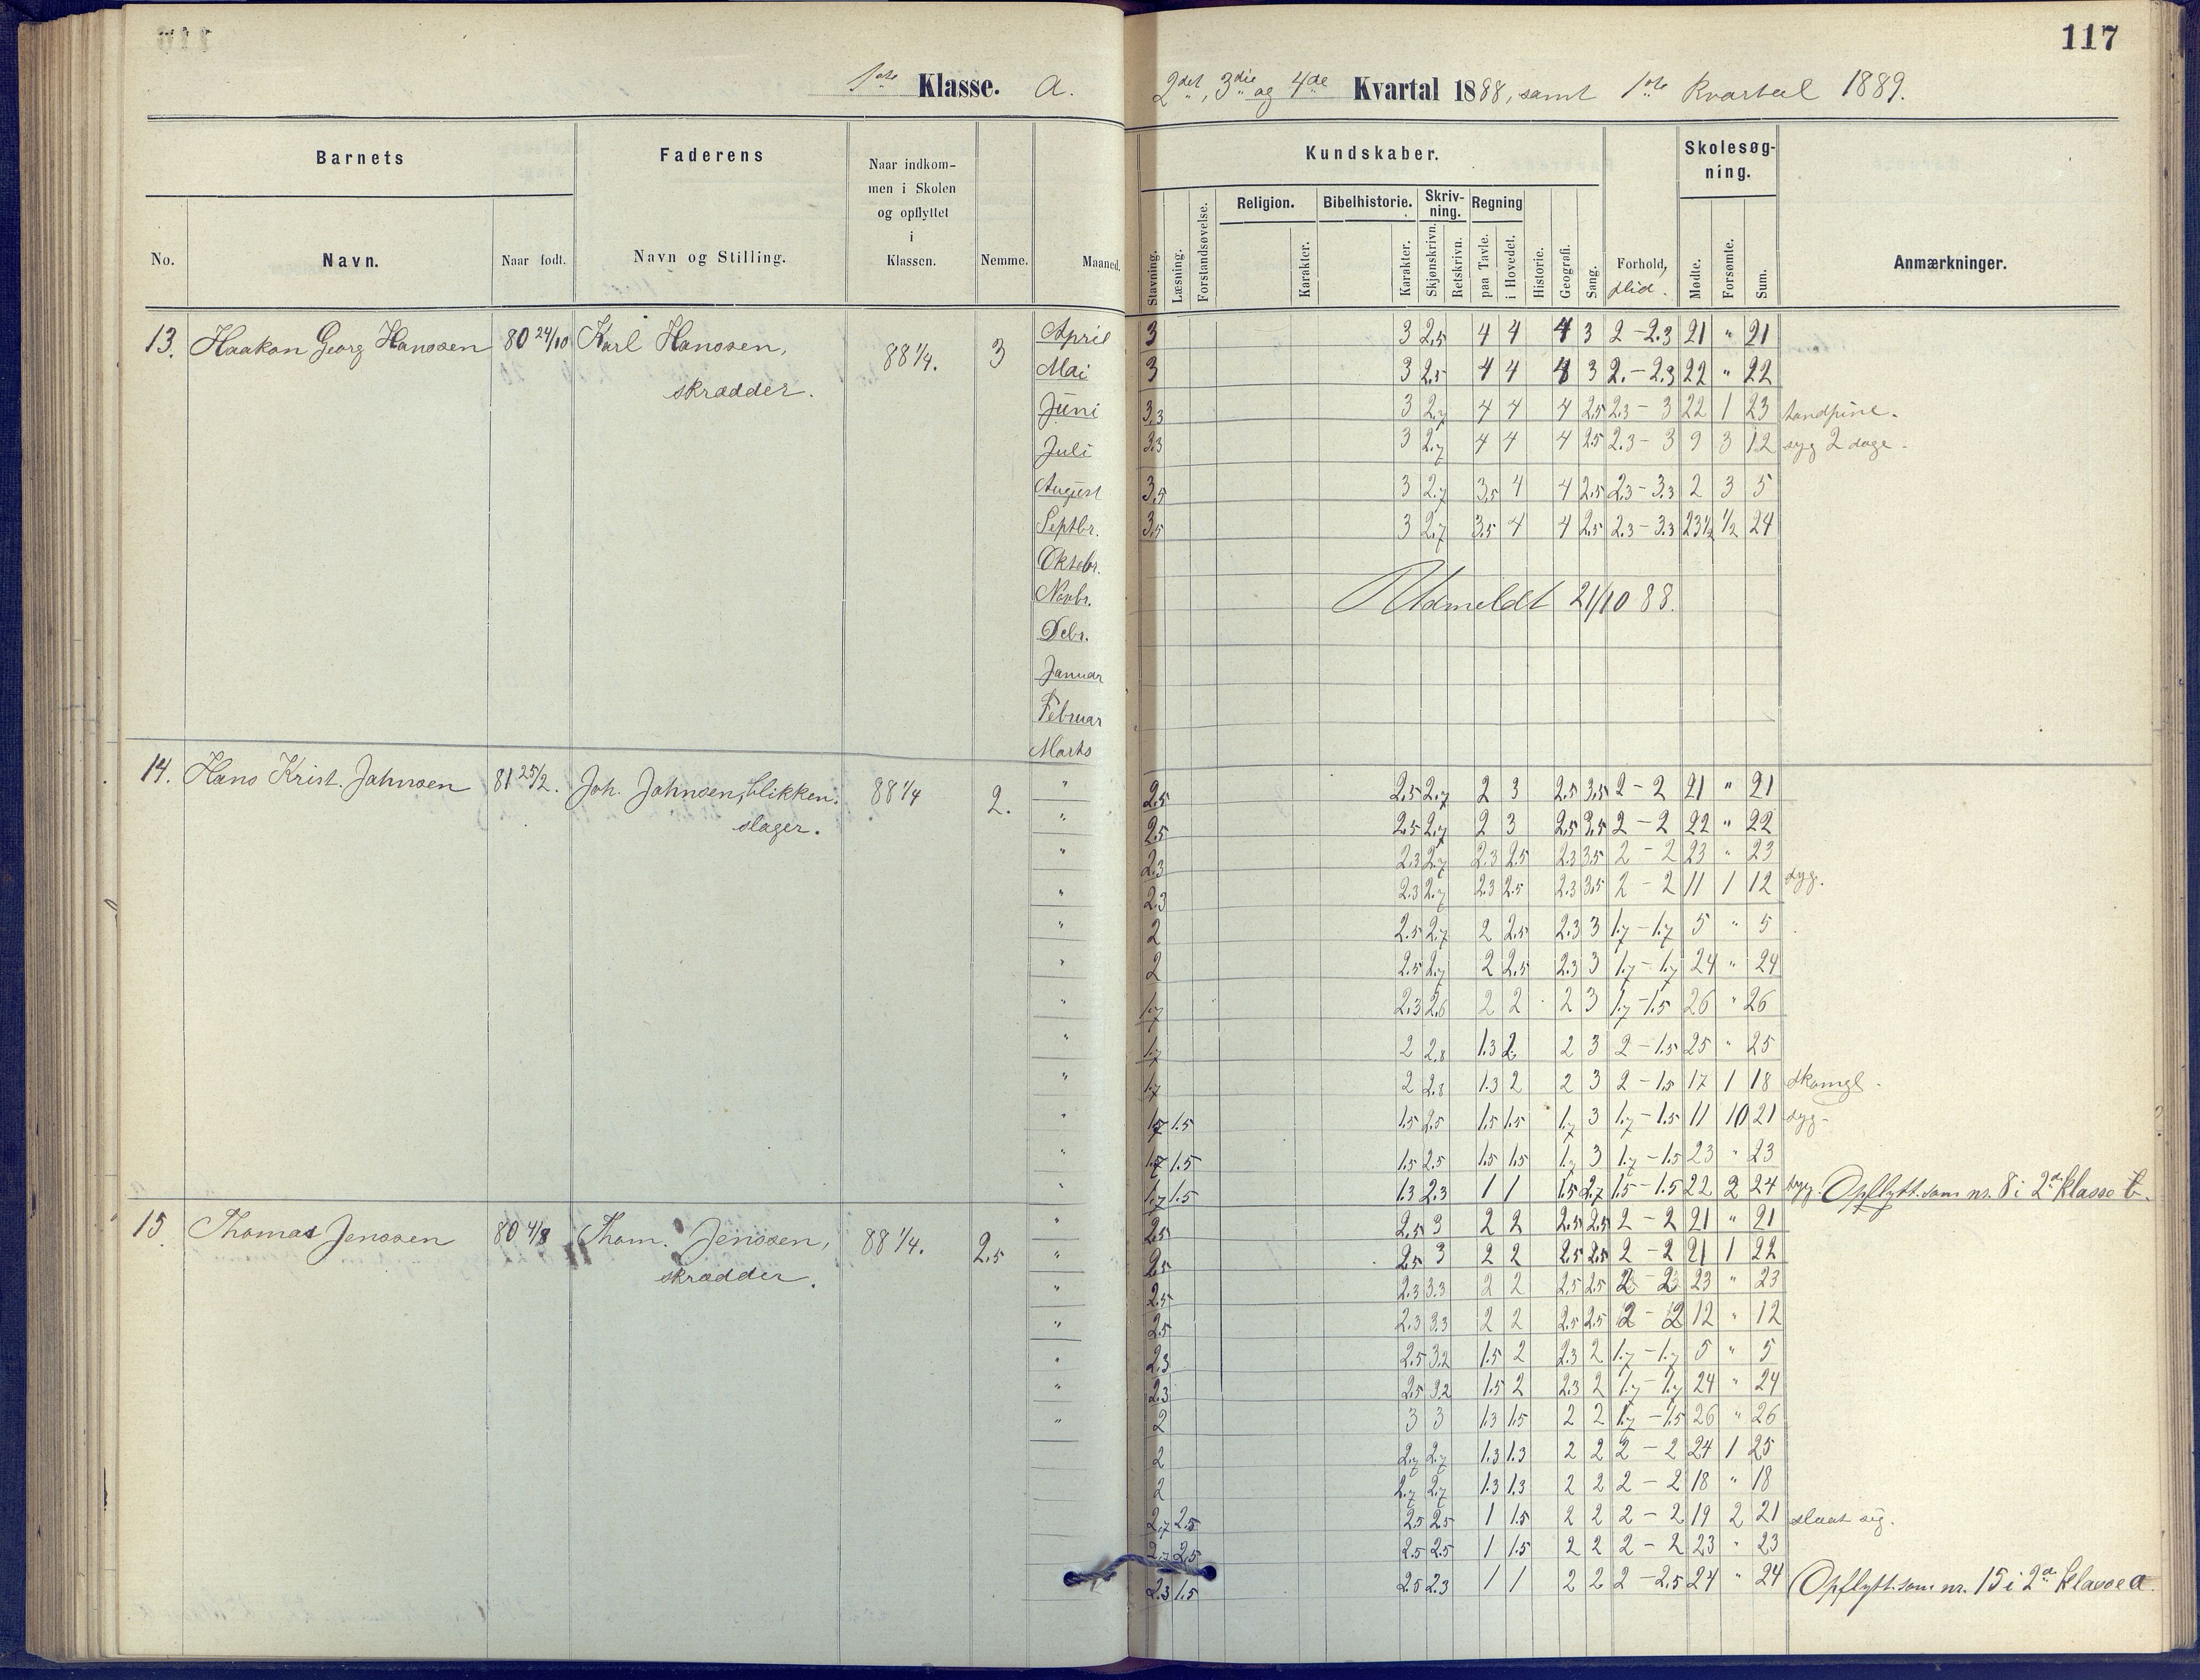 117
1ste Klasse. a.
2det, 3die og 4de Kvartal 1888, samt 1ste Kvartal 1889.
Barnets
Faderens
Naar indkom-
men i Skolen
og opflyttet
i
Klassen.
Kundskaber.
Skolesøg-
ning.
No.
Navn.
Naar født.
Navn og Stilling.
Nemme.
Maaned.
Stavning.
Læsning.
Forstandsøvelse.
Religion.
Karakter.
Bibelhistorie.
Karakter.
Skriv-
ning.
Skjønskrivn.
Retskrivn.
Regning
paa Tavle.
i Hovedet.
Historie.
Geografi.
Sang.
Forhold,
flid.
Mødte.
Forsømte.
Sum.
Anmærkninger.
13. Haakon Georg Hanssen 80 24/10 Karl Hanssen, 88 1/4. 3
skrædder.
April 3 3 2,5 4 4 4 3 2 - 2.3 21 " 21
Mai 3 3 2,5 4 4 4 3 2. - 2.3 22 " 22
Juni 3,3 3 2,7 4 4 4 2.5 2.3 - 3 22 1 23 tandpine.
Juli 3.3 3 2,7 4 4 4 2.5 2.3 - 3 9 3 12 syg 2 dage.
August 3,5 3 2,7 3,5 4 4 2.5 2.3 - 3.3 2 3 5
Septbr. 3,5 3 2,7 3.5 4 4 2.5 2.3 - 3.3 23 1/2 1/2 24
Oktobr.
Novbr. Udmeldt 21/10 88.
Debr.
Januar
Februar
Marts
14. Hans Krist. Johnsen 81 25/2. Joh. Johnsen, blikken- 88 1/4 2.
slager.
" 2.5 2.5 2.7 2 3 2.5 3.5 2 - 2 21 " 21
" 2.5 2.5 2.7 2 3 2.5 3.5 2 - 2 22 " 22
" 2.3 2.3 2.7 2.3 2.5 2.3 3.5 2 - 2 23 " 23
" 2.3 2.3 2.7 2.3 2.5 2.3 3.5 2 - 2 11 1 12 syg.
" 2 2.5 2.7 2 2.5 2.3 3 1.7 - 1.7 5 " 5
" 2 2.5 2.7 2 2.5 2.3 3 1.7 - 1.7 24 " 24
" 1.7 2.3 2.6 2 2 2 3 1.7 - 1.5 26 " 26
" 1.7 2 2.8 1.3 2 2 3 2 - 1.5 25 " 25
" 1.7 2 2.8 1.3 2 2 3 2 - 1.5 17 1 18 skomgl.
" 1.7 1.5 1.5 2.5 1.5 1.5 1.7 3 1.7 - 1.5 11 10 21 syg.
" 1.7 1.5 1.5 2.5 1.5 1.5 1.7 3 1.7 - 1.5 23 " 23
" 1.7 1.5 1.3 2.3 1 1 1.5 2.7 1.5 - 1.5 22 2 24 syg. Opflytt. som nr. 8 i 2den klasse b.
15. Thomas Jenssen 80 4/8 Thom. Jenssen, 88 1/4. 2.5
skrædder.
" 2.5 2.5 3 2 2 2.5 2.5 2 - 2 21 " 21
" 2.5 2.5 3 2 2 2.5 2.5 2 - 2 21 1 22
" 2.5 2.3 3.3 2 2 2.5 2.5 2 - 2 23 " 23
" 2.5 2.3 3.3 2 2 2.5 2.5 2 - 2 12 " 12
" 2.3 2.5 3.2 1.5 2 2.3 2 1.7 - 1.7 5 " 5
" 2.3 2.5 3.2 1.5 2 2.3 2 1.7 - 1.7 24 " 24
" 2 3 3 1.3 1.5 2 2 1.7 - 1.5 26 " 26
2 2.7 2.7 1.3 1.3 2 2 2 - 2 24 1 25
2 2.7 2.7 1.3 1.3 2 2 2 - 2 18 " 18
2.7 2.5 2.5 2.5 1 1.5 2 2 2 - 2 19 2 21 slaat sig.
2.7 2.5 2.5 2.5 1 1.5 2 2 2 - 2 23 " 23
2.3 1.5 2.5 2.3 1 1 2 2 2 - 2.5 24 " 24 Opflytt. som nr. 15 i 2den klasse a.